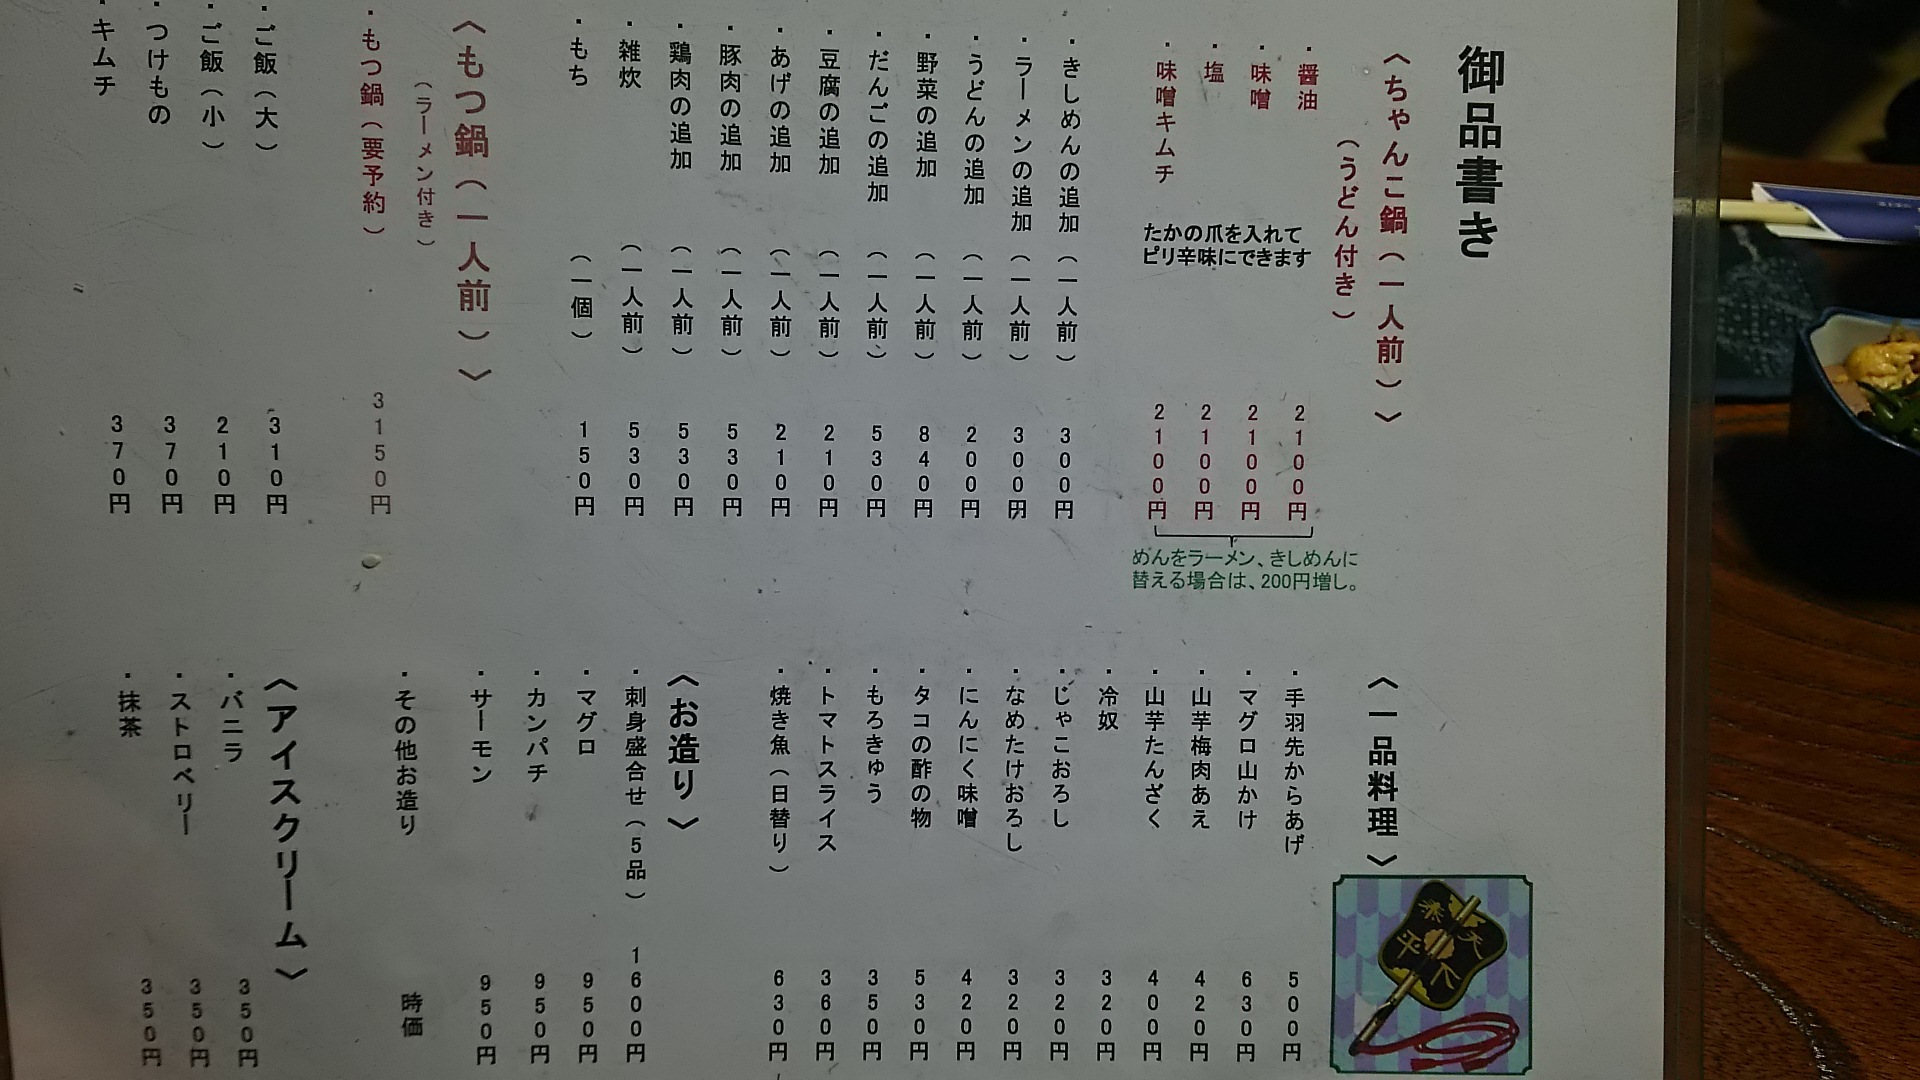 御品書き
〈ちゃんこ鍋（一人前）〉
（うどん付き）
・醤油 2100円
・味噌 2100円
・塩 2100円
・味噌キムチ 2100円
たかの爪を入れて
ピリ辛味にできます
めんをラーメン、きしめんに
替える場合は、200円増し。
・きしめんの追加（一人前） 300円
・ラーメンの追加（一人前） 300円
・うどんの追加（一人前） 200円
・野菜の追加（一人前） 840円
・だんごの追加（一人前） 530円
・豆腐の追加（一人前） 210円
・あげの追加（一人前） 210円
・豚肉の追加（一人前） 530円
・鶏肉の追加（一人前） 530円
・雑炊（一人前） 530円
・もち（一個） 150円
〈もつ鍋（一人前）〉
（ラーメン付き）
・もつ鍋（要予約） 3150円
・ご飯（大） 310円
・ご飯（小） 210円
・つけもの 370円
・キムチ 370円
〈一品料理〉
・手羽先からあげ 500円
・マグロ山かけ 630円
・山芋梅肉あえ 420円
・山芋たんざく 400円
・冷奴 320円
・じゃこおろし 320円
・なめたけおろし 320円
・にんにく味噌 420円
・タコの酢の物 530円
・もろきゅう 350円
・トマトスライス 360円
・焼き魚（日替り） 630円
〈お造り〉
・刺身盛合せ（5品） 1600円
・マグロ 950円
・カンパチ 950円
・サーモン 950円
・その他お造り 時価
〈アイスクリーム〉
・バニラ 350円
・ストロベリー 350円
・抹茶 350円
天下
泰平